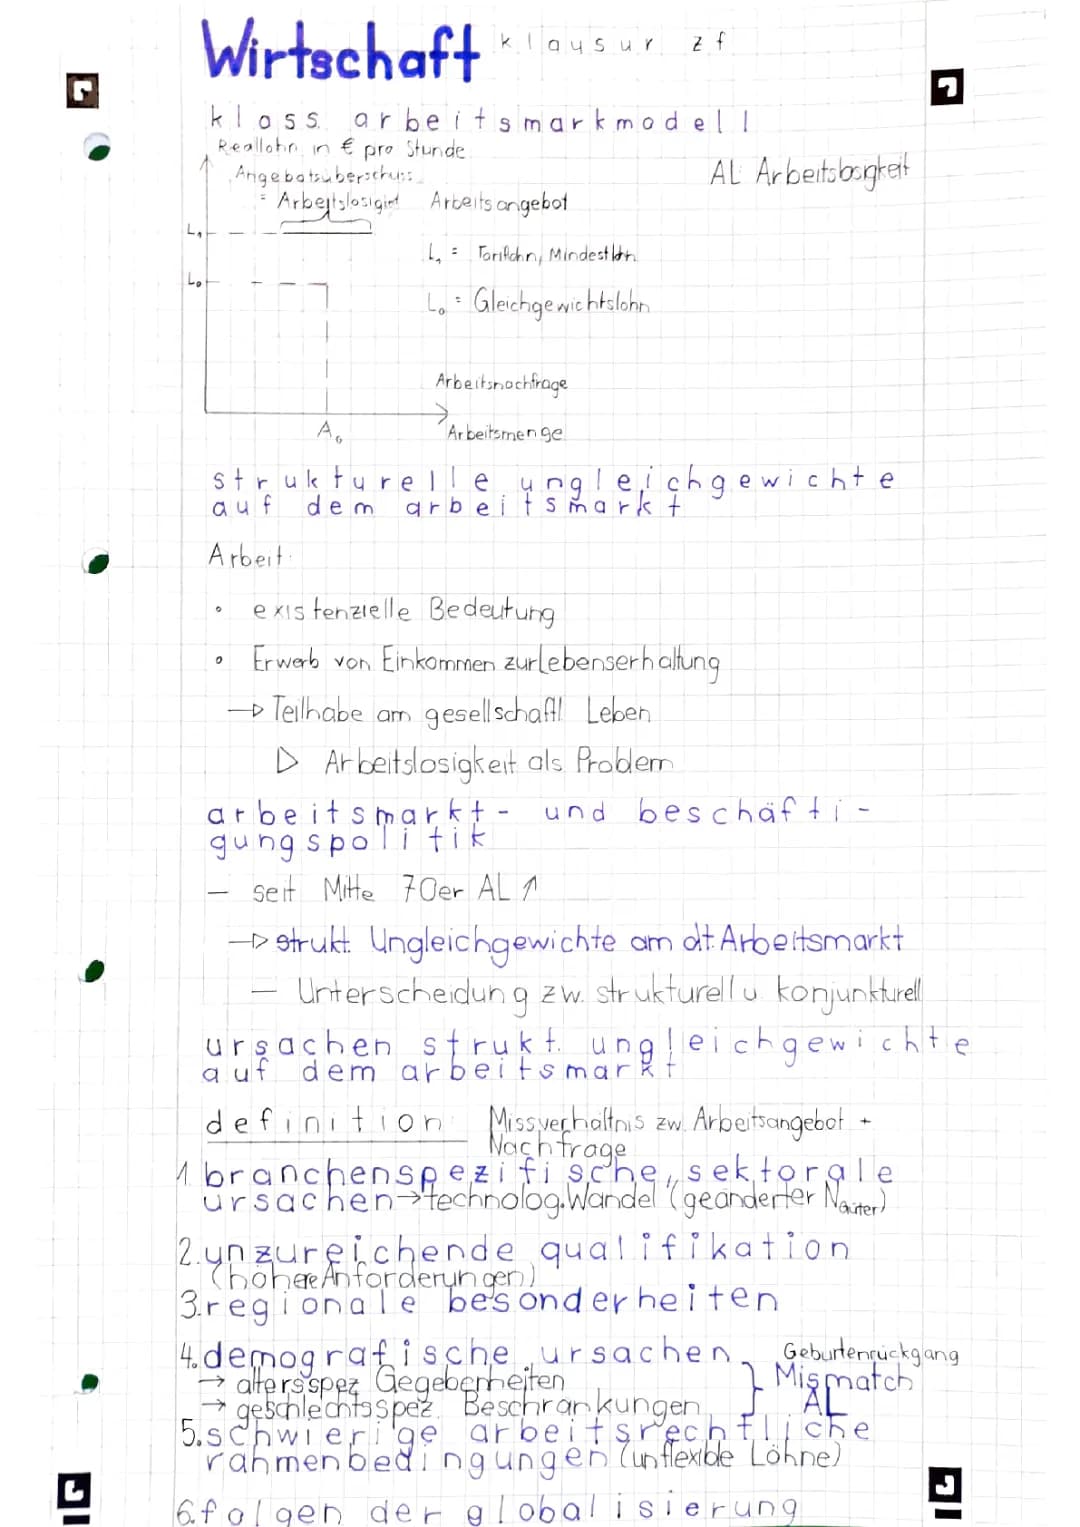 Wirtschaft klausur zf
klass. arbeitsmarkmodell
Reallohn in € pro Stunde
AL: Arbeitslosigkeit
Angebotsüberschuss
= Arbeitslosigkeit Arbeitsangebot
L₁
L₁ = Tariflohn, Mindestlohn
L₀
L₀ = Gleichgewichtslohn
Arbeitsnachfrage
A₀ Arbeitsmenge
strukturelle ungleichgewichte
auf dem arbeitsmarkt
Arbeit:
• existenzielle Bedeutung
• Erwerb von Einkommen zur Lebenserhaltung
→ Teilhabe am gesellschaftl. Leben
▷ Arbeitslosigkeit als Problem
arbeitsmarkt- und beschäfti-
gungspolitik
– seit Mitte 70er AL ↑
→ strukt. Ungleichgewichte am dt. Arbeitsmarkt
– Unterscheidung zw. strukturell u. konjunkturell
ursachen strukt. ungleichgewichte
auf dem arbeitsmarkt
definition: Missverhältnis zw. Arbeitsangebot +
Nachfrage
1. branchenspezifische, sektorale
ursachen → technolog. Wandel (geänderter
2. unzureichende qualifikation
(höhere Anforderungen)
3. regionale besonderheiten
4. demografische ursachen Geburtenrückgang
→ altersspez. Gegebenheiten } Mismatch
→ geschlechtsspez. Beschränkungen AL
5. schwierige arbeitsrechtliche
rahmenbedingungen (unflexible Löhne)
6. folgen der globalisierung